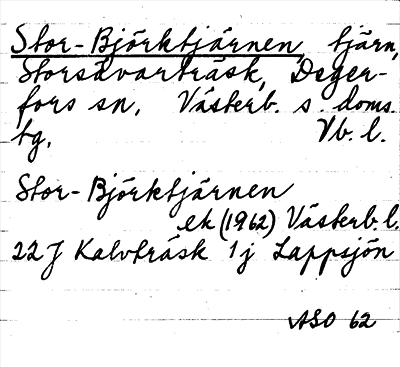 Stor-Björktjärnen, tjärn,
Storsävarträsk, Deger-
fors sn. Västerb. s. doms.
tg. Vb. l.
Stor-Björktjärnen
ek (1962) Västerb. l.
22J Kalvträsk 1j Lappsjön
ASO 62